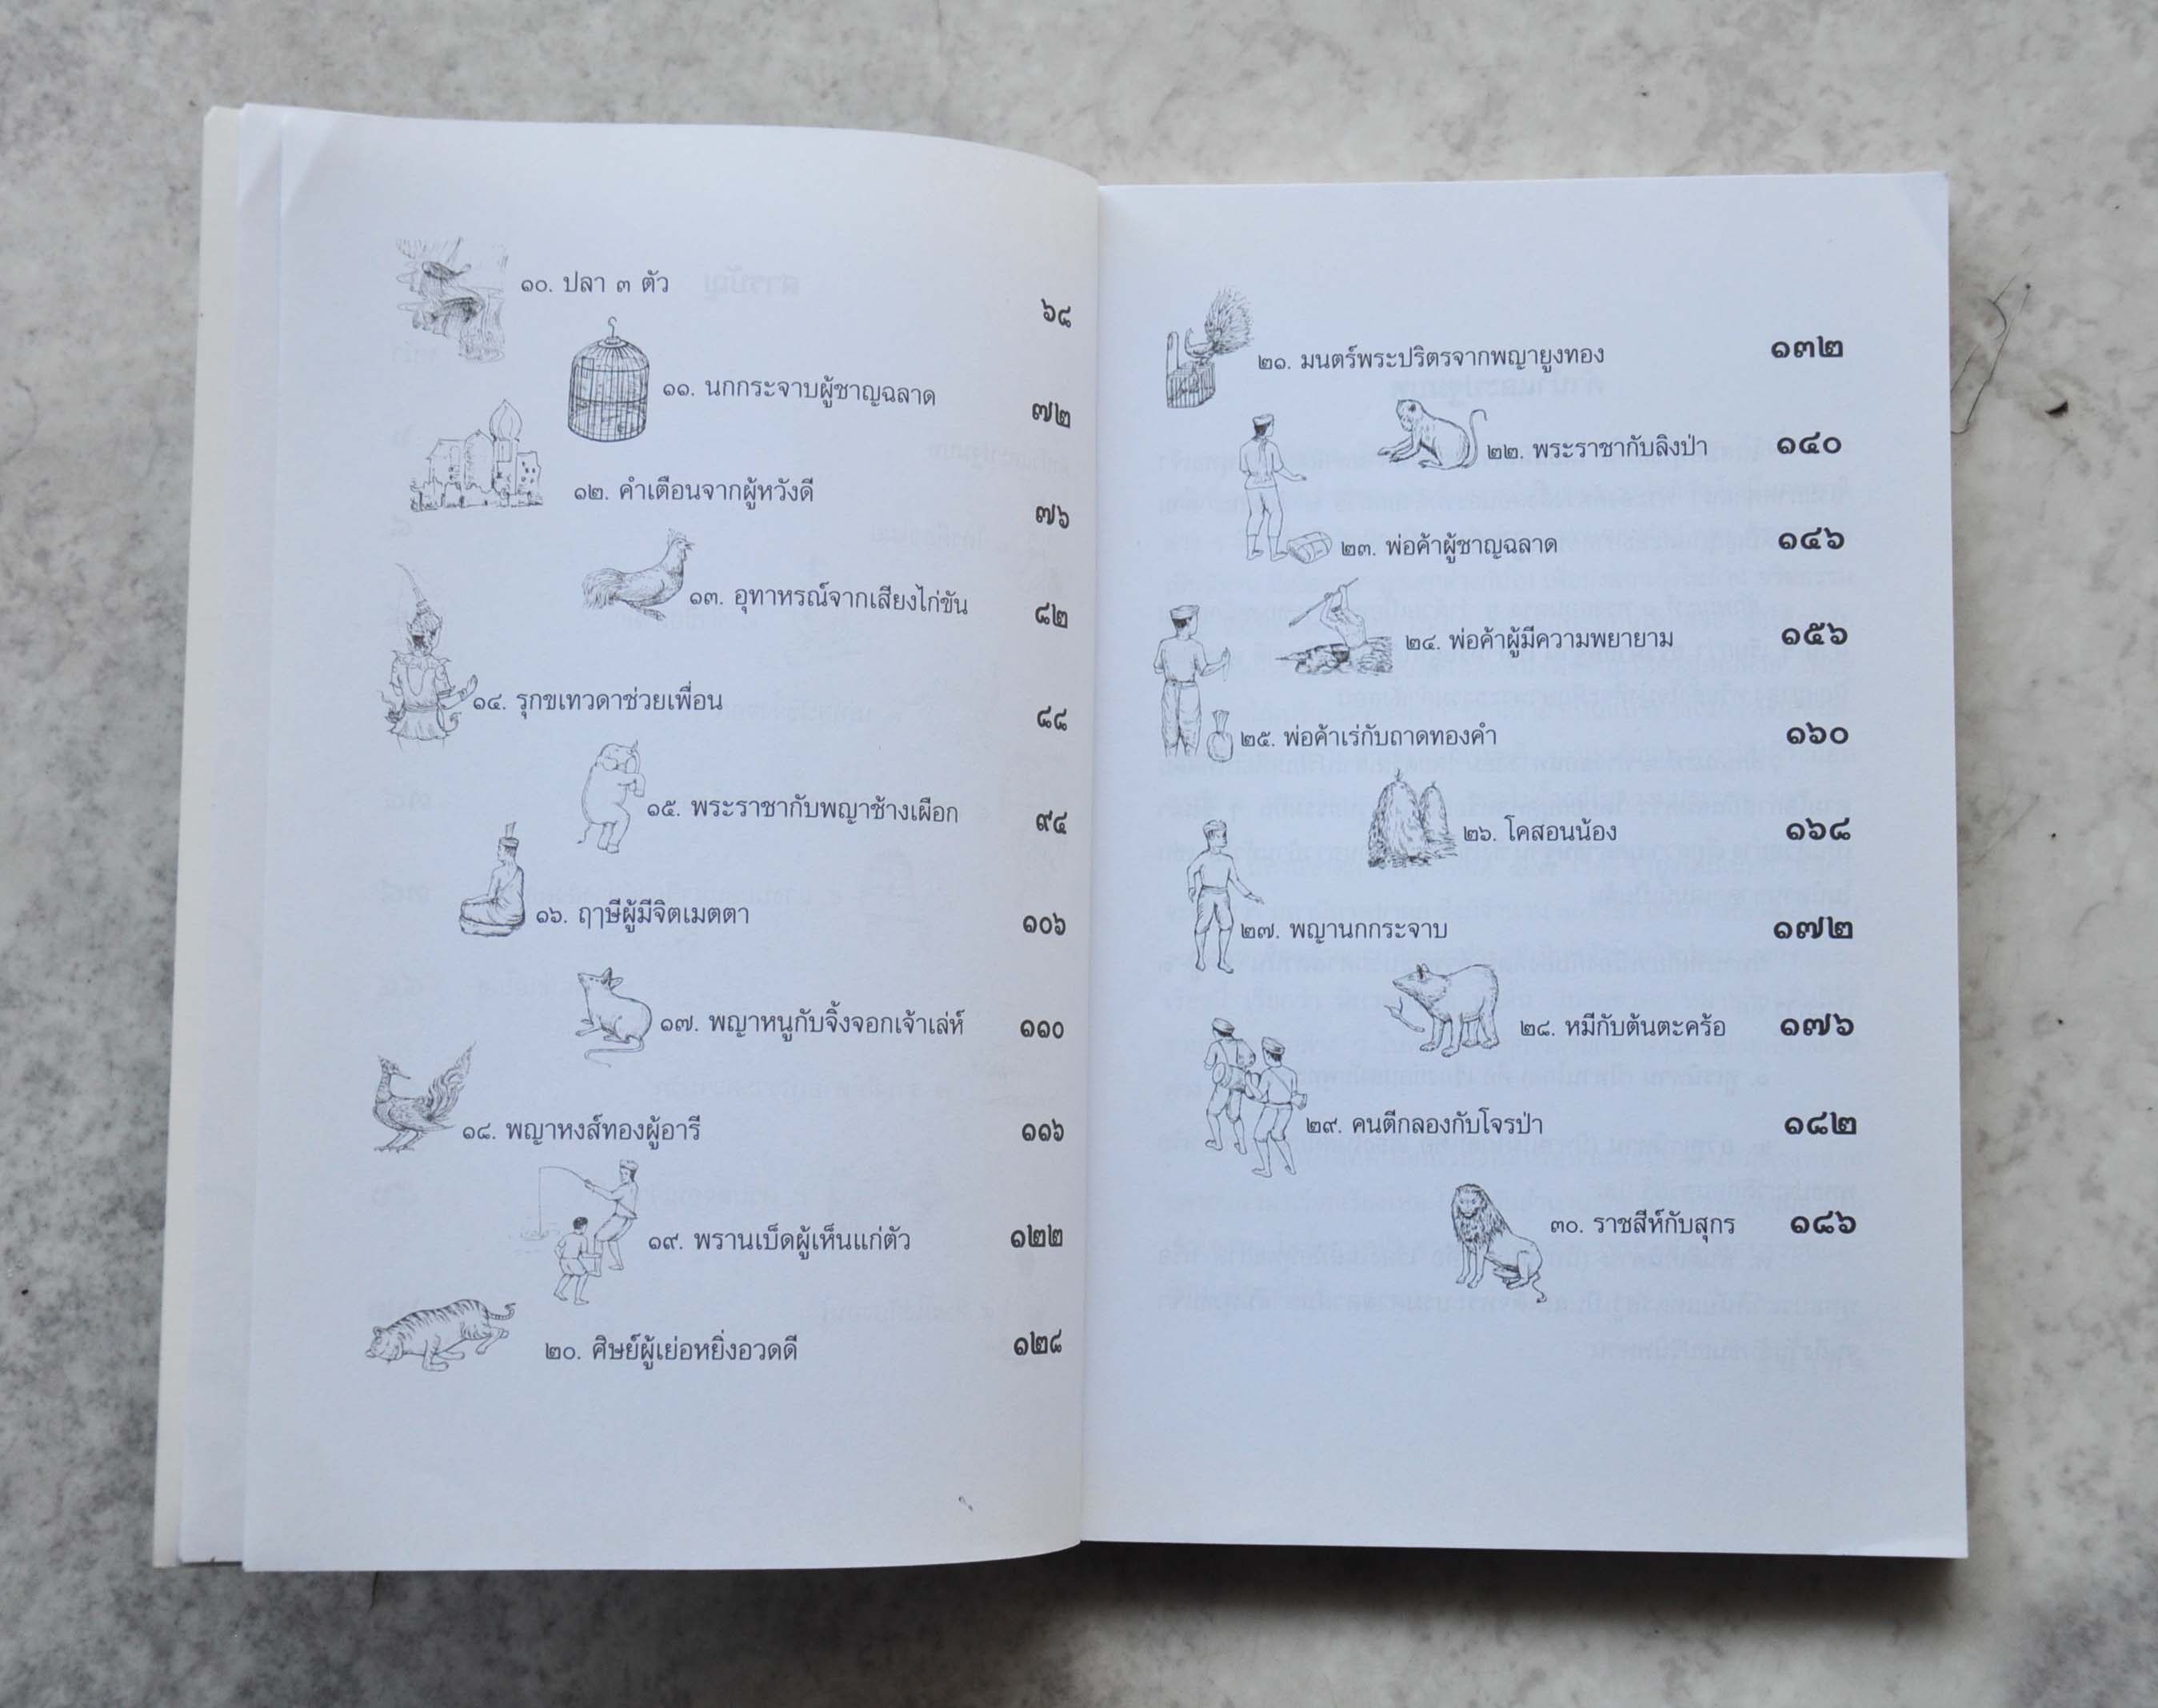 ๑๐. ปลา ๓ ตัว ๖๘
๑๑. นกกระจาบผู้ชาญฉลาด ๗๒
๑๒. คำเตือนจากผู้หวังดี ๗๖
๑๓. อุทาหรณ์จากเสียงไก่ขัน ๘๒
๑๔. รุกขเทวดาช่วยเพื่อน ๘๘
๑๕. พระราชากับพญาช้างเผือก ๙๔
๑๖. ฤาษีผู้มีจิตเมตตา ๑๐๖
๑๗. พญาหนูกับจิ้งจอกเจ้าเล่ห์ ๑๑๐
๑๘. พญาหงส์ทองผู้อารี ๑๑๖
๑๙. พรานเบ็ดผู้เห็นแก่ตัว ๑๒๒
๒๐. ศิษย์ผู้เย่อหยิ่งอวดดี ๑๒๘
๒๑. มนตร์พระปริตรจากพญายูงทอง ๑๓๒
๒๒. พระราชากับลิงป่า ๑๔๐
๒๓. พ่อค้าผู้ชาญฉลาด ๑๔๖
๒๔. พ่อค้าผู้มีความพยายาม ๑๕๖
๒๕. พ่อค้าเร่กับถาดทองคำ ๑๖๐
๒๖. โคสอนน้อง ๑๖๘
๒๗. พญานกกระจาบ ๑๗๒
๒๘. หมีกับต้นตะคร้อ ๑๗๖
๒๙. คนตีกลองกับโจรป่า ๑๘๒
๓๐. ราชสีห์กับสุกร ๑๘๖